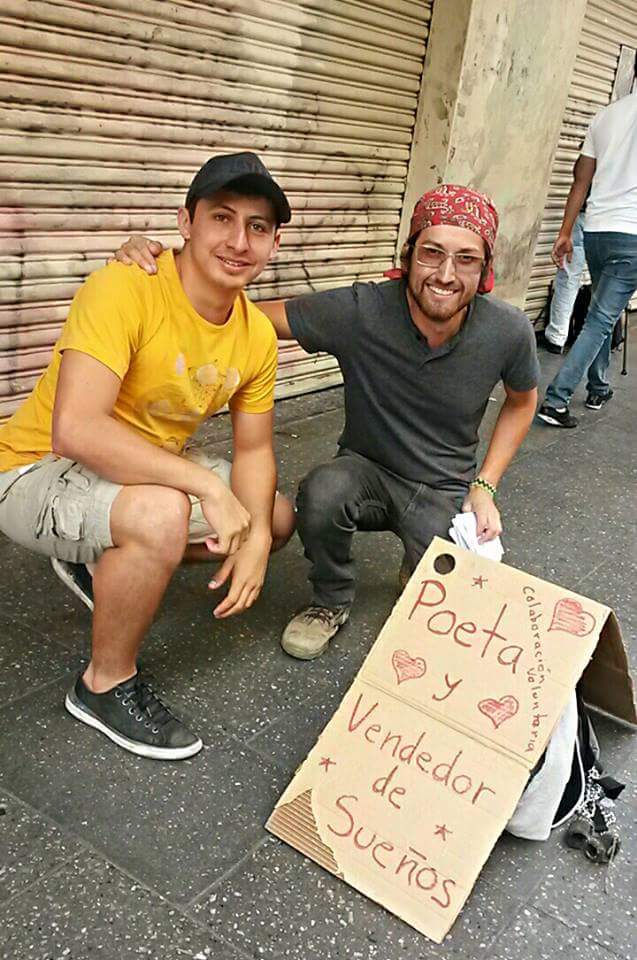 Poeta
y
Vendedor
de
Sueños
Colaboración
Voluntaria